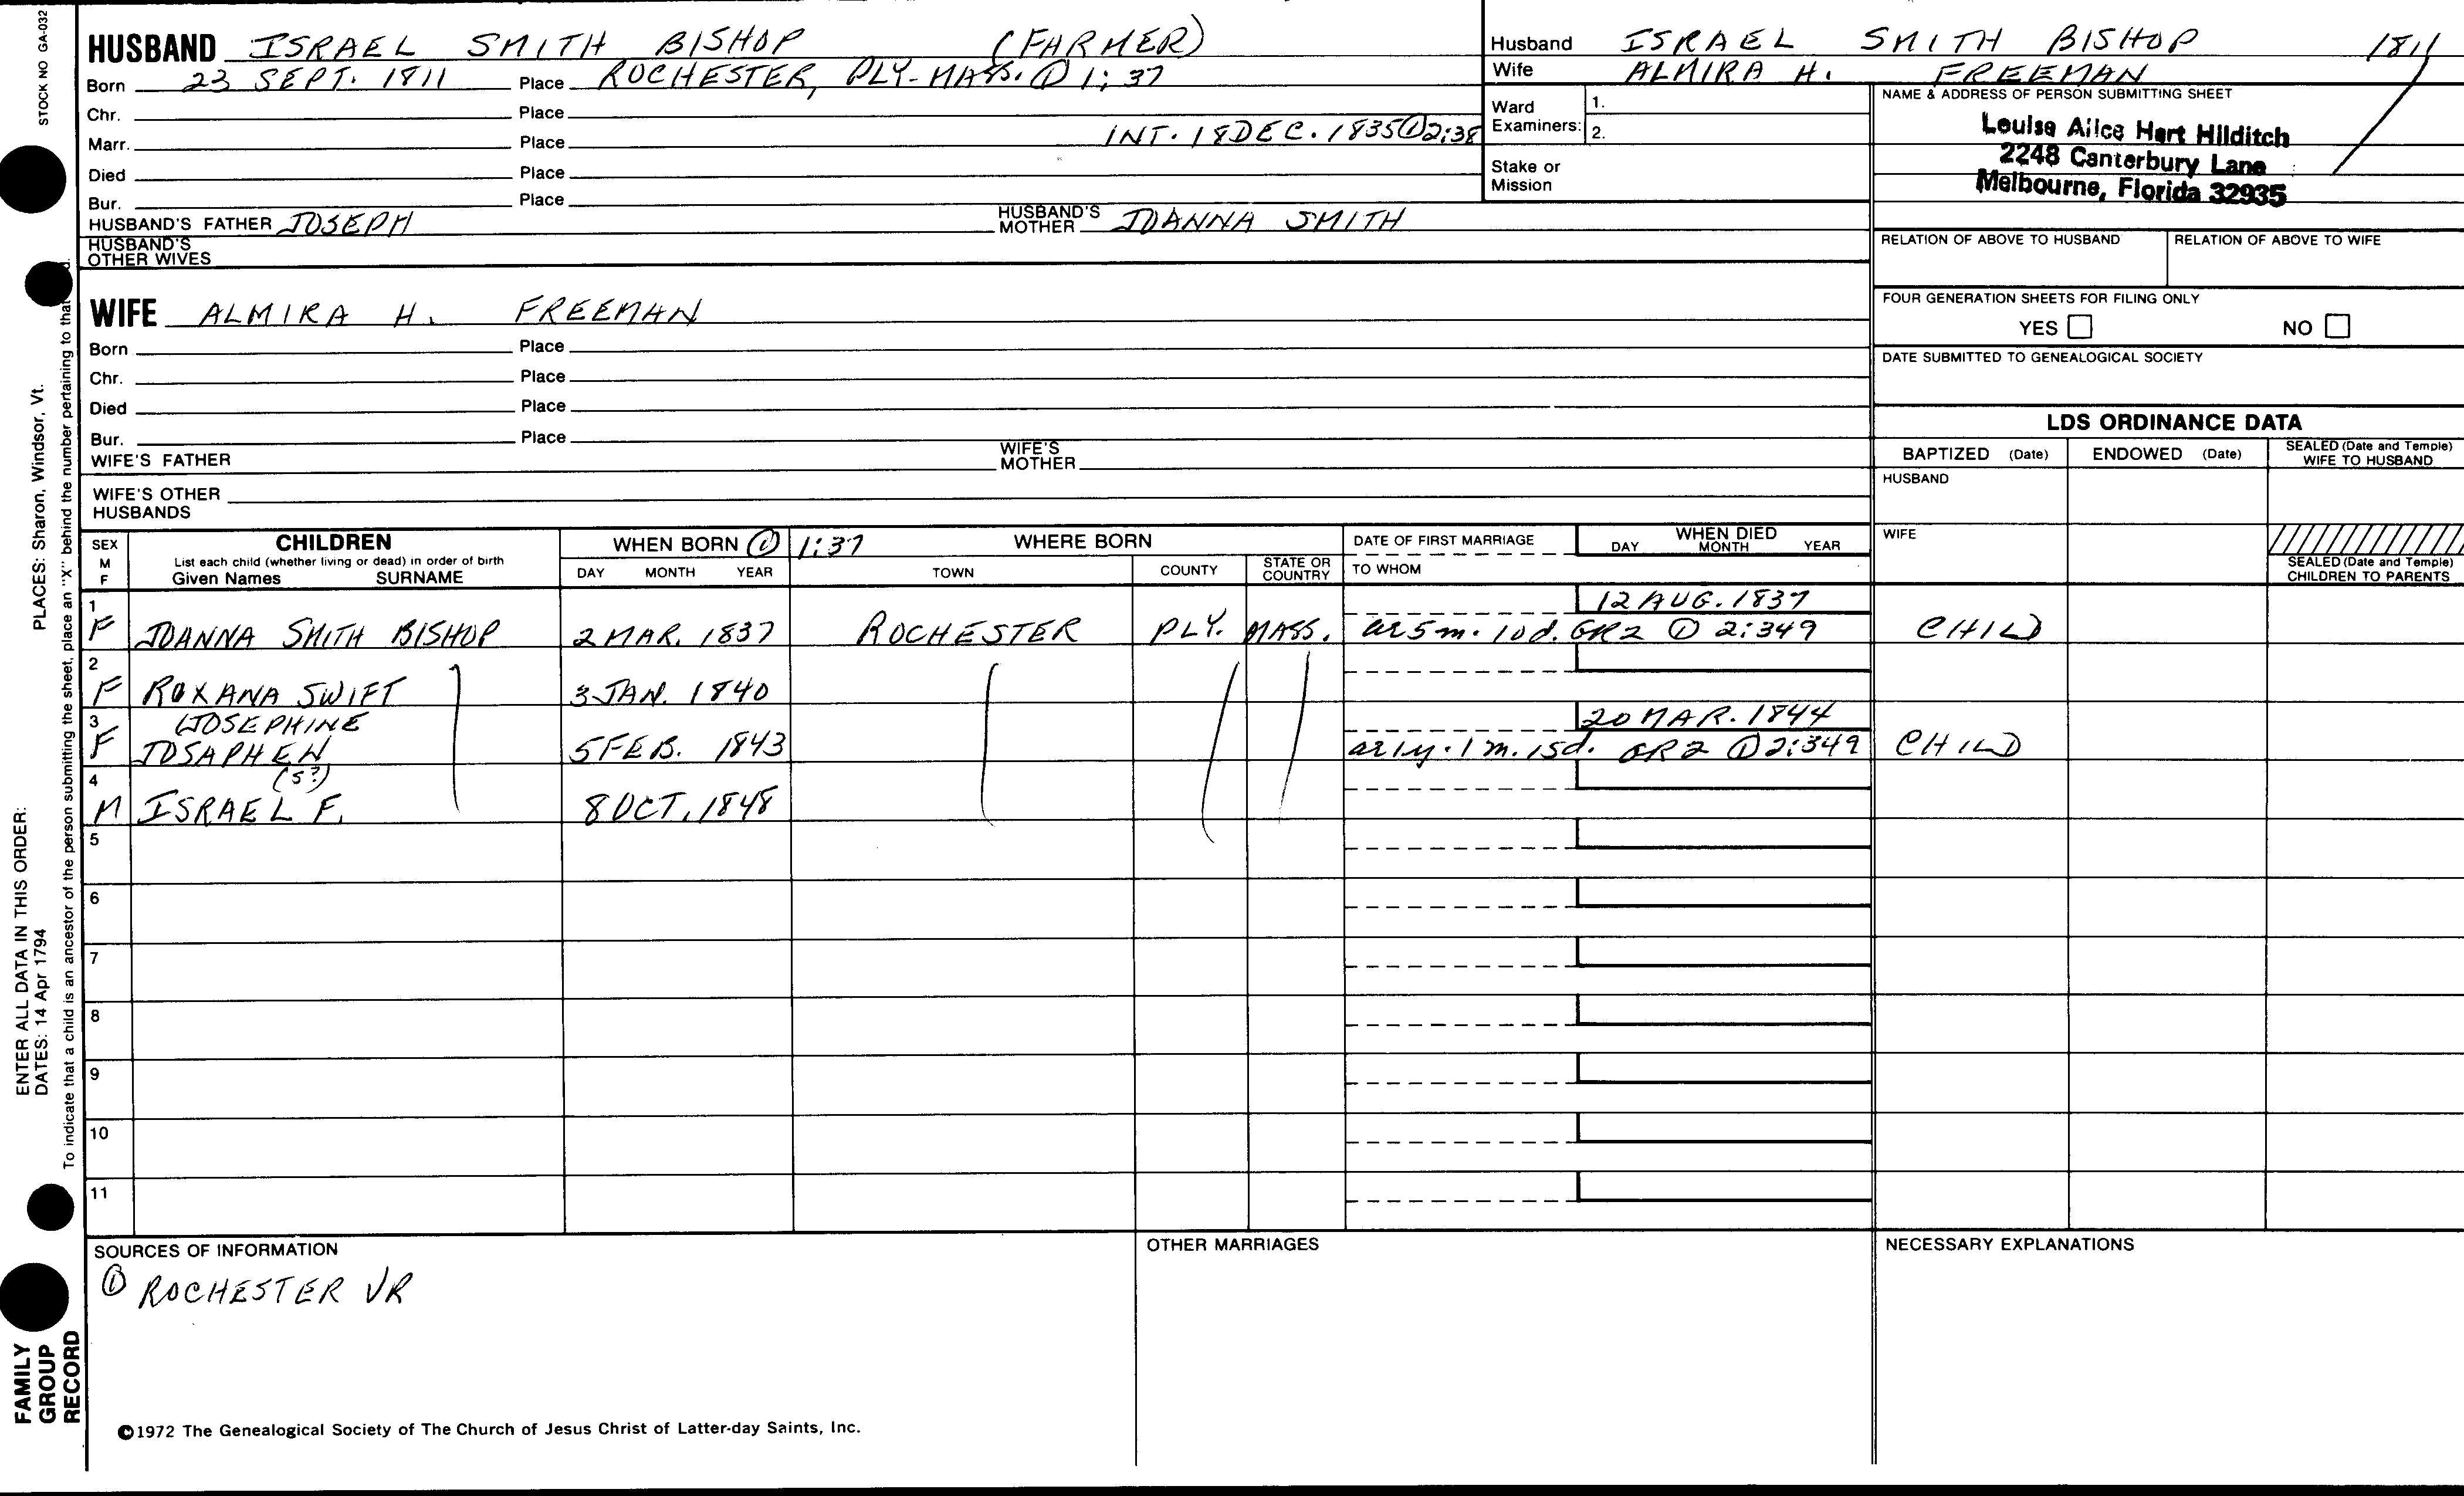 STOCK NO GA-032
HUSBAND ISRAEL SMITH BISHOP (FARMER)
Born 23 SEPT. 1811 Place ROCHESTER, PLY-MASS. ① 1:37
Chr. Place
Marr. Place INT. 18 DEC. 1835 ① 2:38
Died Place
Bur. Place
HUSBAND'S FATHER JOSEPH HUSBAND'S MOTHER JOANNA SMITH
HUSBAND'S OTHER WIVES
WIFE ALMIRA H. FREEMAN
Born Place
Chr. Place
Died Place
Bur. Place
WIFE'S FATHER WIFE'S MOTHER
WIFE'S OTHER HUSBANDS
Husband ISRAEL SMITH BISHOP 1811
Wife ALMIRA H. FREEMAN
Ward Examiners: 1.
2.
Stake or Mission
NAME & ADDRESS OF PERSON SUBMITTING SHEET
Louise Alice Hart Hilditch
2248 Canterbury Lane
Melbourne, Florida 32935
RELATION OF ABOVE TO HUSBAND RELATION OF ABOVE TO WIFE
FOUR GENERATION SHEETS FOR FILING ONLY
YES NO
DATE SUBMITTED TO GENEALOGICAL SOCIETY
LDS ORDINANCE DATA
BAPTIZED (Date) ENDOWED (Date) SEALED (Date and Temple) WIFE TO HUSBAND
HUSBAND
WIFE
SEALED (Date and Temple) CHILDREN TO PARENTS
SEX M F
CHILDREN
List each child (whether living or dead) in order of birth
Given Names SURNAME
WHEN BORN ① 1:37
DAY MONTH YEAR
WHERE BORN
TOWN COUNTY STATE OR COUNTRY
DATE OF FIRST MARRIAGE
TO WHOM
WHEN DIED
DAY MONTH YEAR
12 AUG. 1837
1 F JOANNA SMITH BISHOP 2 MAR. 1837 ROCHESTER PLY. MASS. ae 5 m. 10 d. GR2 ① 2:349 CHILD
2 F ROXANA SWIFT 3 JAN. 1840
3 JOSEPHINE 20 MAR. 1844
F JOSAPHEN 5 FEB. 1843 ae 1 y. 1 m. 15 d. GR2 ① 2:349 CHILD
(s?)
4 M ISRAEL F. 8 OCT. 1848
5
6
7
8
9
10
11
SOURCES OF INFORMATION
① ROCHESTER VR
OTHER MARRIAGES
NECESSARY EXPLANATIONS
©1972 The Genealogical Society of The Church of Jesus Christ of Latter-day Saints, Inc.
PLACES: Sharon, Windsor, Vt.
ENTER ALL DATA IN THIS ORDER:
DATES: 14 Apr 1794
To indicate that a child is an ancestor of the person submitting the sheet, place an "X" behind the number pertaining to that
FAMILY GROUP RECORD